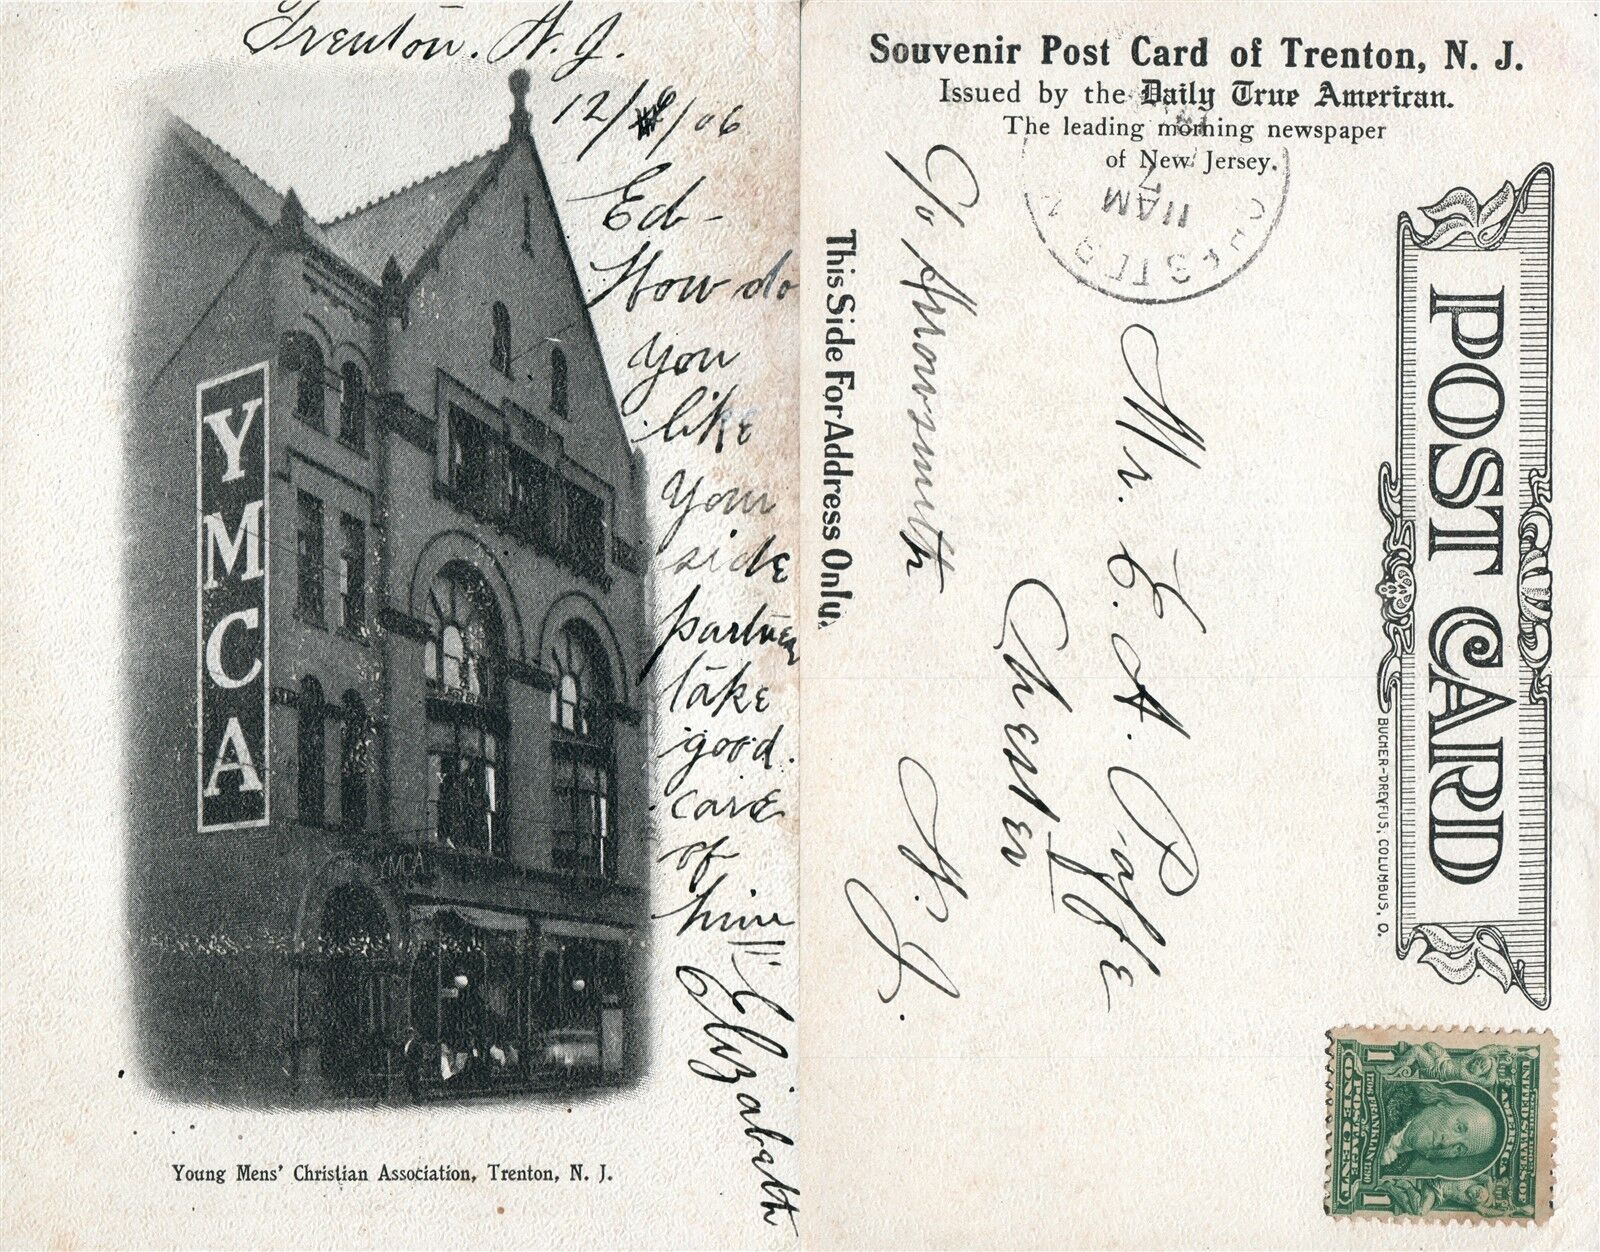 Trenton. N. J.
12/6/06
Ed-
How do
you
like
your
side
partner
take
good
care
of
him
Elizabeth
Y
M
C
A
YMCA
Young Mens' Christian Association, Trenton, N. J.
Souvenir Post Card of Trenton, N. J.
Issued by the Daily True American.
The leading morning newspaper
of New Jersey.
This Side For Address Only.
POST CARD
BUCHER-DREYFUS, COLUMBUS, O.
CHESTER
7
11 AM
Mr. E. A. Paffe
Chester
N. J.
c/o Arrowsmith
UNITED STATES OF AMERICA
1 1
ONE CENT